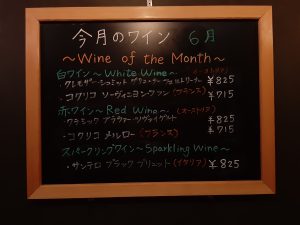 今月のワイン 6月
～Wine of the Month～
白ワイン～White Wine～ (オーストリア)
クレモザー・シュミット グリューナー ¥825
・コクリコ ソーヴィニヨン・ブラン (フランス) ¥715
赤ワイン～Red Wine～ (オーストリア)
・クラシック ブラウアー・ツヴァイゲルト ¥825
・コクリコ メルロー (フランス) ¥715
スパークリングワイン～Sparkling Wine～
・サンテロ ブラック ブリュット (イタリア) ¥825